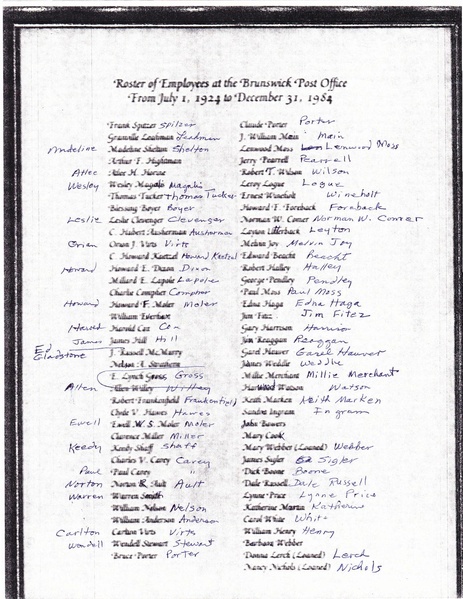 Roster of Employees at the Brunswick Post Office
From July 1, 1924 to December 31, 1984
Frank Spitzer Spitzer
Granville Leahman Leahman
Madeline Madeline Shelton Shelton
Arthur F. Hightman
Atlee Atlee H. Horine
Wesley Wesley Magalis Magalis
Thomas Tucker Thomas Tucker
Blessing Boyer Boyer
Leslie Leslie Clevenger Clevenger
C. Hubert Ausherman Ausherman
Orian Orian J. Virts Virts
C. Howard Kaetzel Howard Kaetzel
Howard Howard E. Dixon Dixon
Millard E. Lapole Lapole
Charlie Compher Compher
Howard Howard F. Moler Moler
William Everhart
Harold Harold Cox Cox
James James Hill Hill
Ed Gladstone J. Russell McMurry
Nelson E. Strathern
E. Lynch Gross, Gross
Allen Allen Willey
Robert Frankenfield Frankenfield
Clyde V. Hawes Hawes
Ewell Ewell W. S. Moler Moler
Clarence Miller Miller
Keedy Keedy Shaff Shaff
Charles V. Carey Carey
Paul Paul Carey "
Norton Norton R. Ault Ault
Warren Warren Smith
William Nelson Nelson
William Anderson Anderson
Carlton Carlton Virts Virts
Wendell Wendell Stewart Stewart
Bruce Porter Porter
Claude Porter Porter
J. William Main Main
Lenwood Moss Lenwood Moss
Jerry Pearrell Pearrell
Robert T. Wilson Wilson
Leroy Logue Logue
Ernest Wineholt Wineholt
Howard F. Foreback Foreback
Norman W. Comer Norman W. Comer
Layton Utterback Layton
Melvin Joy Melvin Joy
Edward Beacht Beacht
Robert Halley Halley
George Pendley Pendley
Paul Moss Paul Moss
Edna Haga Edna Haga
Jim Fitez Jim Fitez
Gary Harrison Harrison
Jim Reaggan Reaggan
Garel Hauver Garel Hauver
James Weddle Weddle
Millie Merchant Millie Merchant
Watson Watson
Keith Marken Keith Marken
Sandra Ingram Ingram
John Bowers
Mary Cook
Mary Webber (Loaned) Webber
James Sigler Sigler
Dick Boone Boone
Dale Russell Dale Russell
Lynne Price Lynne Price
Katherine Martin
Carol White White
William Henry Henry
Barbara Webber
Donna Lerch (Loaned) Lerch
Nancy Nichols (Loaned) Nichols